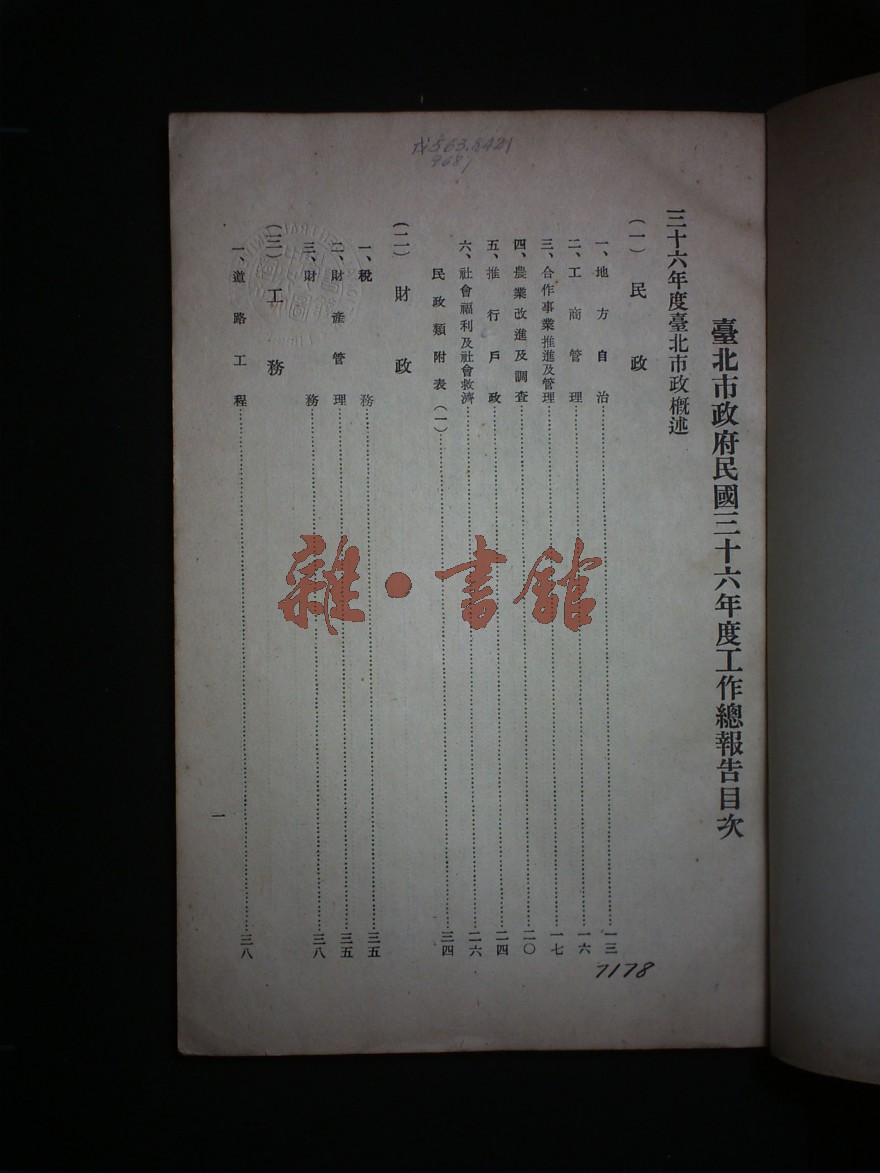 臺北市政府民國三十六年度工作總報告目次
三十六年度臺北市政概述
(一)民政
一、地方自治……一三
二、工商管理……一六
三、合作事業推進及管理……一七
四、農業改進及調查……二〇
五、推行戶政……二四
六、社會福利及社會救濟……二六
民政類附表(一)……三四
(二)財政
一、稅務……三五
二、財產管理……三五
三、財務……三八
(三)工務
一、道路工程……三八
一
7178
563.8421
9687
雜·書館